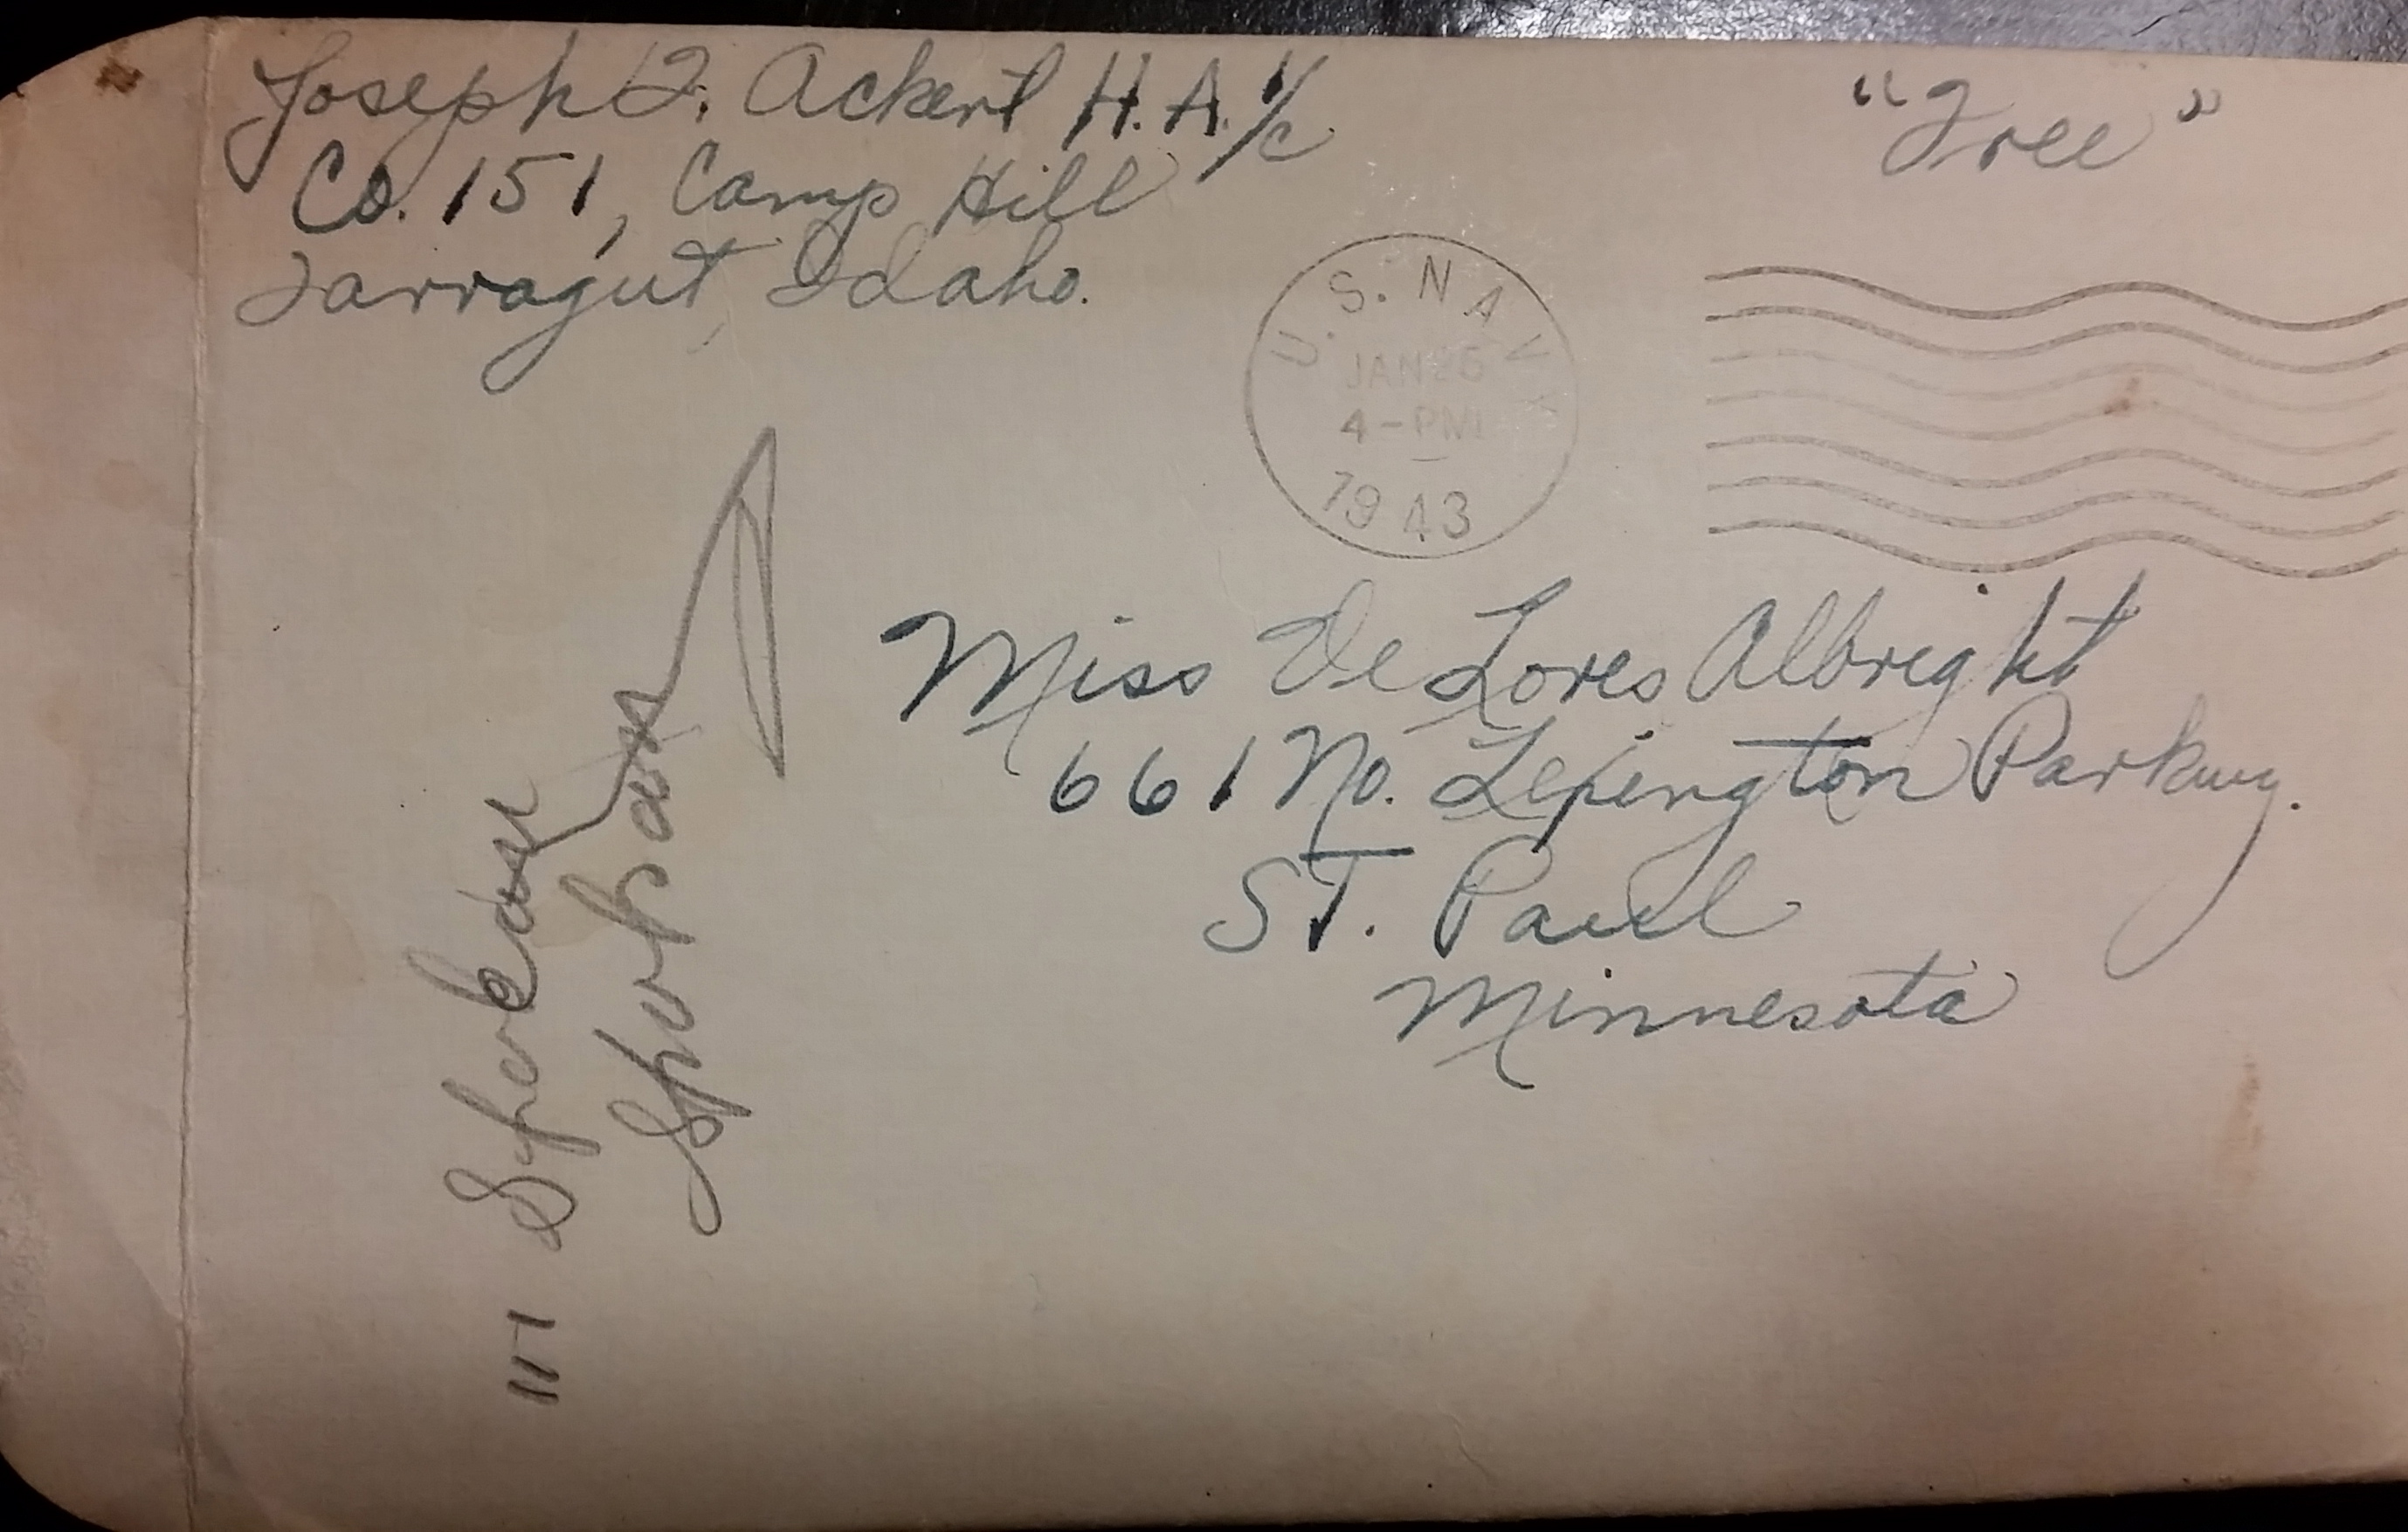 Joseph F. Ackert H.A. 1/c
Co. 151, Camp Hill
Farragut, Idaho.
"Free"
U.S. NAVY
JAN 26
4-PM
1943
Miss De Lores Albright
661 No. Lexington Parkwy.
ST. Paul
Minnesota
Spokane
Spokane